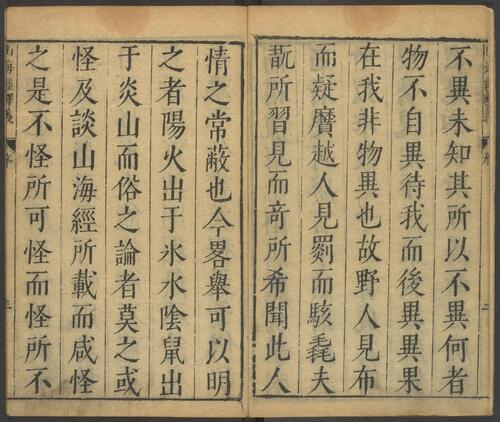 不異未知其所以不異何者
物不自異待我而後異異果
在我非物異也故野人見布
而疑黂越人見罽而駭毳夫
翫所習見而竒所希聞此人
情之常蔽也今畧舉可以明
之者陽火出于氷水陰鼠出
于炎山而俗之論者莫之或
怪及談山海經所載而咸怪
之是不怪所可怪而怪所不
山海經釋義 序 三